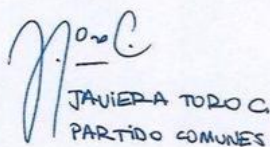 JAViERA TORO C.
PARTiDO COMUNES